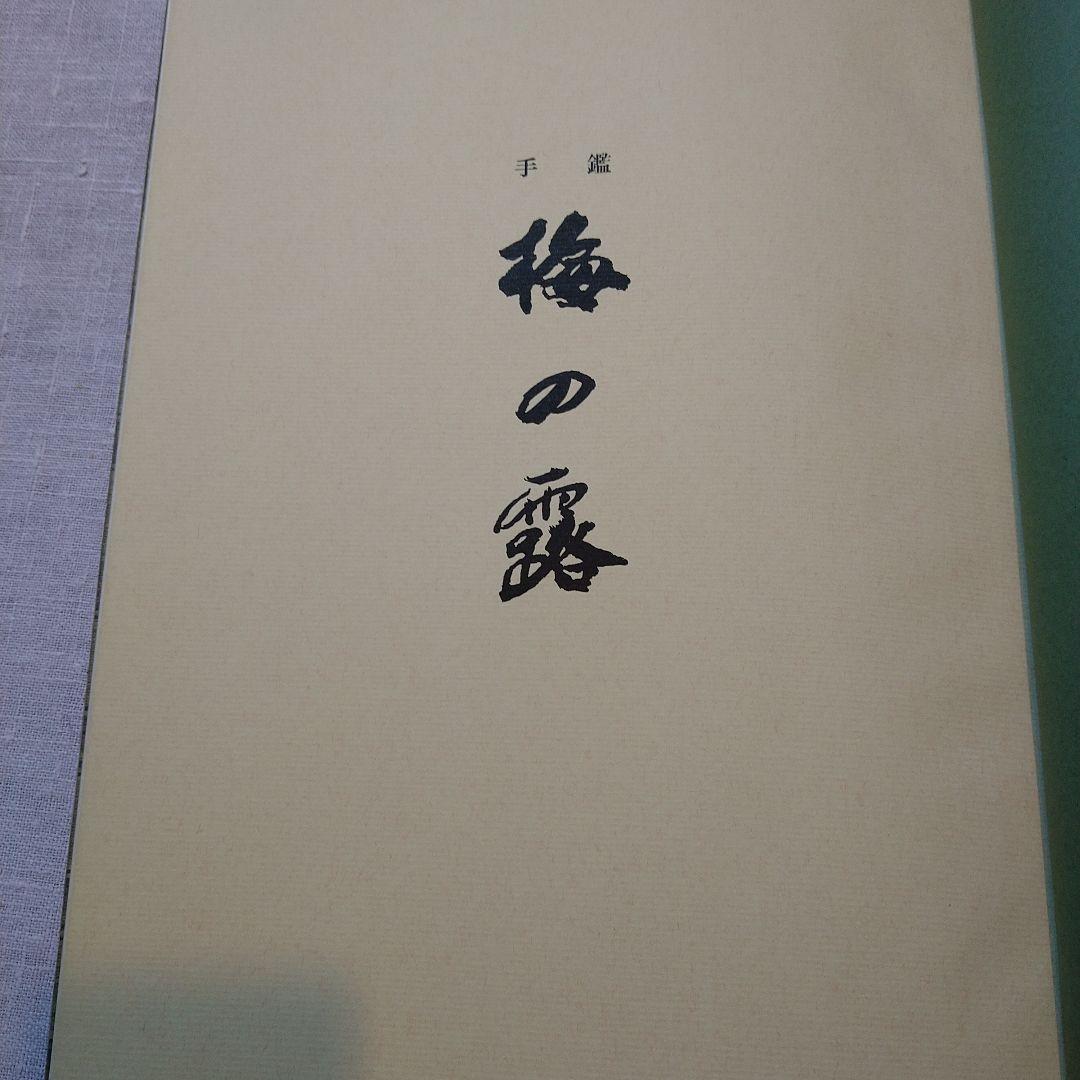 手鑑
梅の露